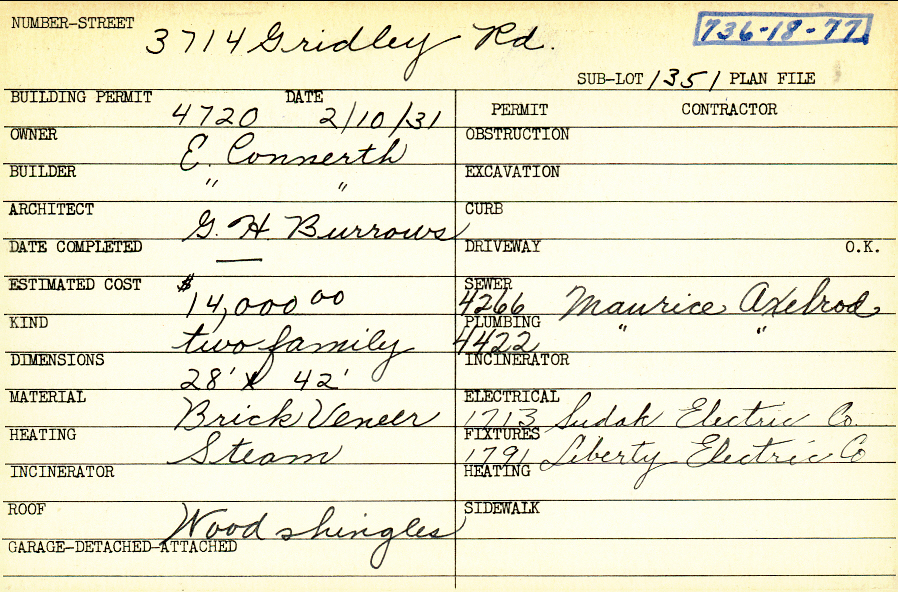 NUMBER-STREET 3714 Gridley Rd. 736-18-77
SUB-LOT 1351 PLAN FILE
BUILDING PERMIT 4720 DATE 2/10/31
PERMIT CONTRACTOR
OWNER E. Connerth
OBSTRUCTION
BUILDER " "
EXCAVATION
ARCHITECT G. H. Burrows
CURB
DATE COMPLETED —
DRIVEWAY O.K.
ESTIMATED COST $14,000.00
SEWER 4266 Maurice Axelrod
KIND two family
PLUMBING 4422 " "
DIMENSIONS 28' x 42'
INCINERATOR
MATERIAL Brick Veneer
ELECTRICAL 1713 Sudak Electric Co.
HEATING Steam
FIXTURES 1791 Liberty Electric Co
INCINERATOR
HEATING
ROOF Wood shingles
SIDEWALK
GARAGE-DETACHED-ATTACHED